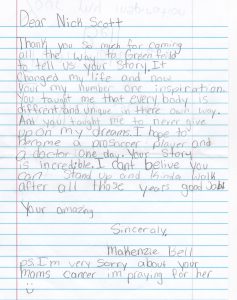 Dear Nick Scott
Thank you so much for coming
all the way to Greenfeild
to tell us your story. It
changed my life and now
your my number one inspiration.
You taught me that every body is
diffrent and unique in there own way.
And you taught me to never give
up on my dreams. I hope to
become a prosoccer player and
a doctor one day. Your story
is incredible. I cant belive you
can stand up and kinda walk
after all those years good Job!
Your amazing
Sincerly,
Makenzie Bell
ps. I'm very sorry about your
moms cancer im praying for her